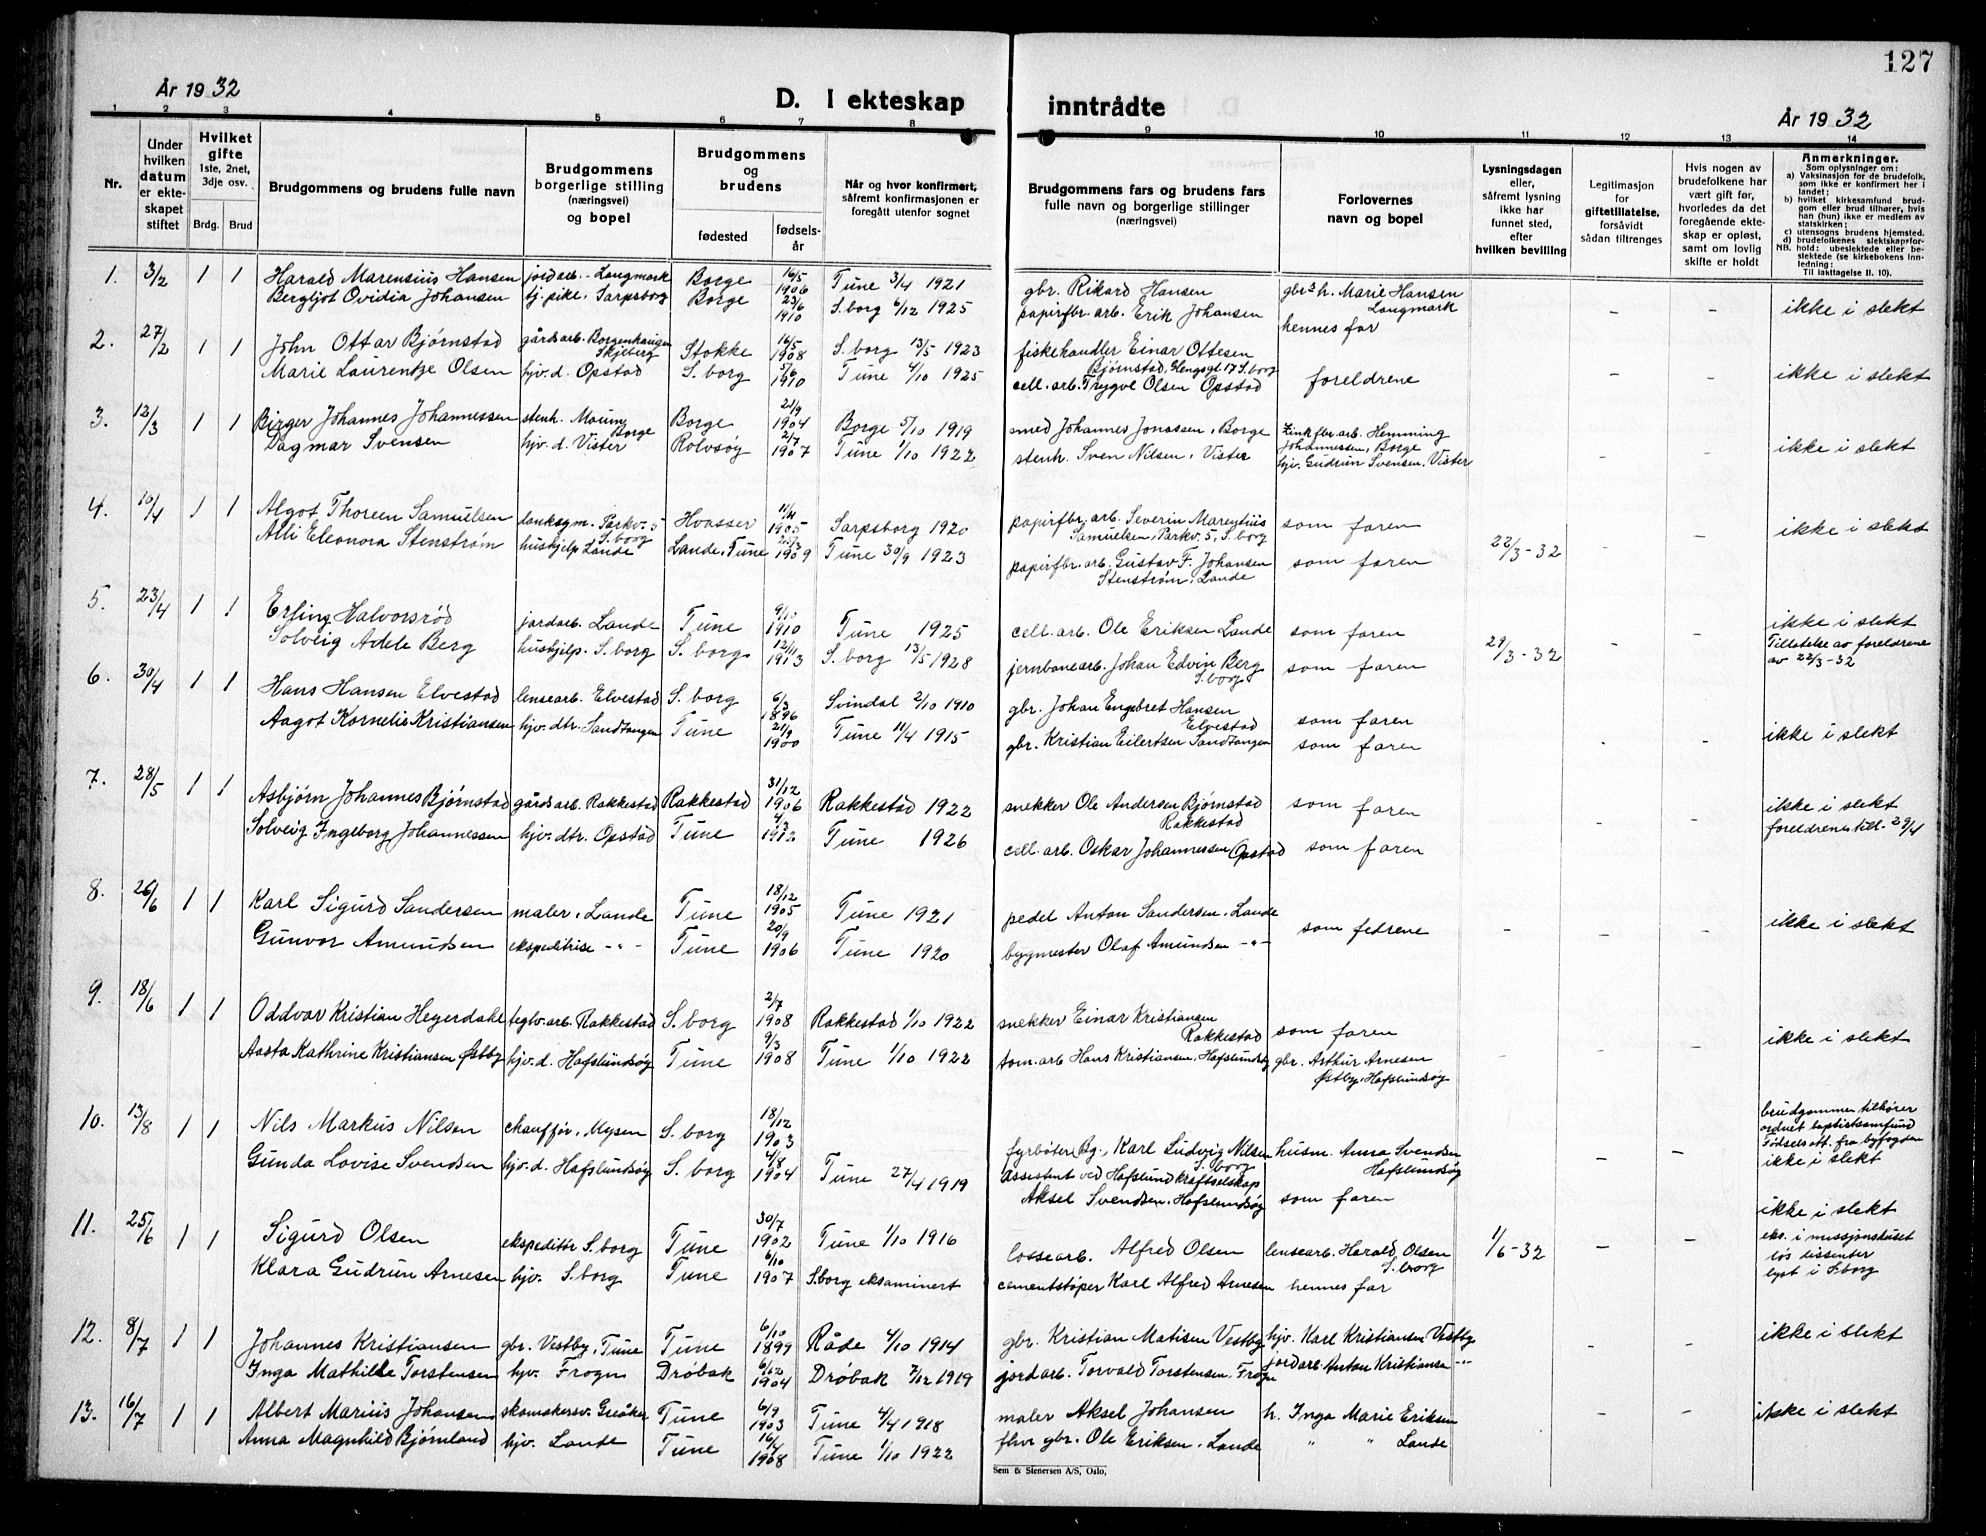 127
År 1932
D. I ekteskap inntrådte
År 1932
1 2 3 4 5 6 7 8 9 10 11 12 13 14
Nr.
Under hvilken datum er ekteskapet stiftet
Hvilket gifte 1ste, 2net, 3dje osv.
Brdg. Brud
Brudgommens og brudens fulle navn
Brudgommens borgerlige stilling (næringsvei) og bopel
Brudgommens og brudens
fødested
fødselsår
Når og hvor konfirmert, såfremt konfirmasjonen er foregått utenfor sognet
Brudgommens fars og brudens fars fulle navn og borgerlige stillinger (næringsvei)
Forlovernes navn og bopel
Lysningsdagen eller, såfremt lysning ikke har funnet sted, efter hvilken bevilling
Legitimasjon for giftetillatelse, forsåvidt sådan tiltrenges
Hvis nogen av brudefolkene har vært gift før, hvorledes da det foregående ekteskap er opløst, samt om lovlig skifte er holdt
Anmerkninger.
Som oplysninger om:
a) Vaksinasjon for de brudefolk, som ikke er konfirmert her i landet;
b) hvilket kirkesamfund brudgom eller brud tilhører, hvis han (hun) ikke er medlem av statskirken;
c) utensogns brudens hjemsted.
d) brudefolkenes slektskapsforhold: ubeslektede eller beslektede (se kirkebokens innledning:
NB.
Til iakttagelse II. 10).
1. 3/2 1 1 Harald Marensius Hansen jordarb. - Langmark Borge 16/5 1906 Tune 3/4 1921 gbr. Rikard Hansen gbr.s h. Marie Hansen Langmark - - ikke i slekt
Bergljot Ovidia Johansen tj. pike, Sarpsborg Borge 23/6 1910 S. borg 6/12 1925 papirfbr. arb. Erik Johansen hennes far
2. 27/2 1 1 John Ottar Bjørnstad gårdsarb. Borgenhaugen Skjeberg Stokke 16/5 1908 S. borg 13/5 1923 fiskehandler Einar Ottesen Bjørnstad, Glengsgt 17 S. borg foreldrene - - ikke i slekt
Marie Laurentze Olsen hjv. d. Opstad S. borg 5/6 1910 Tune 4/10 1925 cell. arb. Trygve Olsen Opstad
3. 12/3 1 1 Birger Johannes Johannessen stenh. Moum, Borge Borge 21/9 1904 Borge 5/10 1919 smed Johannes Jonassen, Borge Zinkfbr. arb. Hemming Johannessen, Borge - - ikke i slekt
Dagmar Svensen hjv. d. Vister Rolvsøy 2/7 1907 Tune 1/10 1922 stenh. Sven Nilsen, Vister hjv. Gudrun Svensen, Vister
4. 10/4 1 1 Algot Thoreen Samuelsen Parkv. 5 S. borg Hvasser 1905 Sarpsborg 1920 papirfbr. arb. Severin Marentius Samuelsen, Parkv. 5, S. borg som faren 22/3-32 - - ikke i slekt
Alli Eleonora Stenstrøm hushjelp Lande Lande, Tune 1909 Tune 30/9 1923 papirfbr. arb. Gustav F. Johansen Stenstrøm, Lande som faren
5. 23/4 1 1 Erling Halvorsrød jordarb. Lande Tune 9/10 1910 Tune 1925 cell. arb. Ole Eriksen Lande som faren 29/3-32 - - ikke i slekt
Solveig Adele Berg hushjelp. S. borg S. borg 12/11 1913 S. borg 13/5 1928 jernbanearb. Johan Edvin Berg S. borg som faren Tillatelse av foreldrene av 22/3-32
6. 30/4 1 1 Hans Hansen Elvestad lensearb. Elvestad S. borg 6/3 1896 Svindal 2/10 1910 gbr. Johan Engebret Hansen Elvestad som faren - - ikke i slekt
Aagot Kornelie Kristiansen hjv. dtr. Sandtangen Tune 21/9 1900 Tune 11/4 1915 gbr. Kristian Eilertsen Sandtangen som faren
7. 28/5 1 1 Asbjørn Johannes Bjørnstad gårdsarb. Rakkestad Rakkestad 31/12 1906 Rakkestad 1922 snekker Ole Andersen Bjørnstad Rakkestad som faren - - ikke i slekt
Solveig Ingeborg Johannessen hjv. dtr. Opstad Tune 4/3 1912 Tune 1926 cell. arb. Oskar Johannessen Opstad som faren foreldrenes till. 29/4
8. 26/6 1 1 Karl Sigurd Sandersen maler, Lande Tune 18/12 1905 Tune 1921 pedel Anton Sandersen, Lande som fedrene - - - ikke i slekt
Gunvor Amundsen ekspeditrise -"- Tune 20/9 1906 Tune 1920 byggmester Olaf Amundsen -"-
9. 18/6 1 1 Oddvar Kristian Hegerdahl teglv. arb. Rakkestad S. borg 2/7 1908 Rakkestad 1/10 1922 snekker Einar Kristiansen Rakkestad som faren - - - ikke i slekt
Aasta Kathrine Kristiansen Østby hjv. d. Hafslundsøy Tune 9/3 1908 Tune 1/10 1922 tom. arb Hans Kristiansen, Hafslundsøy gbr. Arthur Arnesen Østby, Hafslundsøy
10. 13/8 1 1 Nils Markus Nilsen chauffør, Mysen S. borg 18/12 1903 fyrbøter Bg., Karl Ludvig Nilsen S. borg husm. Anna Svendsen Hafslundsøy - - brudgommen tilhører ordnet baptistsamfund Fødselsatt. fra byfogden ikke i slekt
Gunda Lovise Svendsen hjv. d. Hafslundsøy S. borg 4/8 1904 Tune 27/4 1919 assistent ved Hafslund kraftselskap Aksel Svendsen, Hafslundsøy som faren
11. 25/6 1 1 Sigurd Olsen ekspeditør S. borg Tune 30/7 1902 Tune 1/10 1916 lossearb. Alfred Olsen lensearb. Harald Olsen S. borg 1/6-32 - - ikke i slekt
Klara Gudrun Arnesen hjv. S. borg Tune 6/10 1907 S. borg eksaminert cementstøper Karl Alfred Arnesen hennes far eks. i missjonshuset løs dissenter lyst i S. borg
12. 8/7 1 1 Johannes Kristiansen gbr. Vestby, Tune Tune 6/10 1899 Råde 4/10 1914 gbr. Kristian Matisen Vestby hjv. Karl Kristiansen Vestby - - ikke i slekt
Inga Mathilde Torstensen hjv. Frogn Drøbak 6/12 1904 Drøbak 7/12 1919 jordarb. Torvald Torstensen, Frogn jordarb. Anton Kristiansen -"-
13. 16/7 1 1 Albert Marius Johansen skomakersv. Greåker Tune 6/9 1903 Tune 4/4 1918 maler Aksel Johansen h. Inga Marie Eriksen - - ikke i slekt
Anna Magnhild Bjørnland hjv. Lande Tune 16/4 1908 Tune 1/10 1922 fhv. gbr. Ole Eriksen, Lande " " Lande
Sem & Stenersen A/S, Oslo,